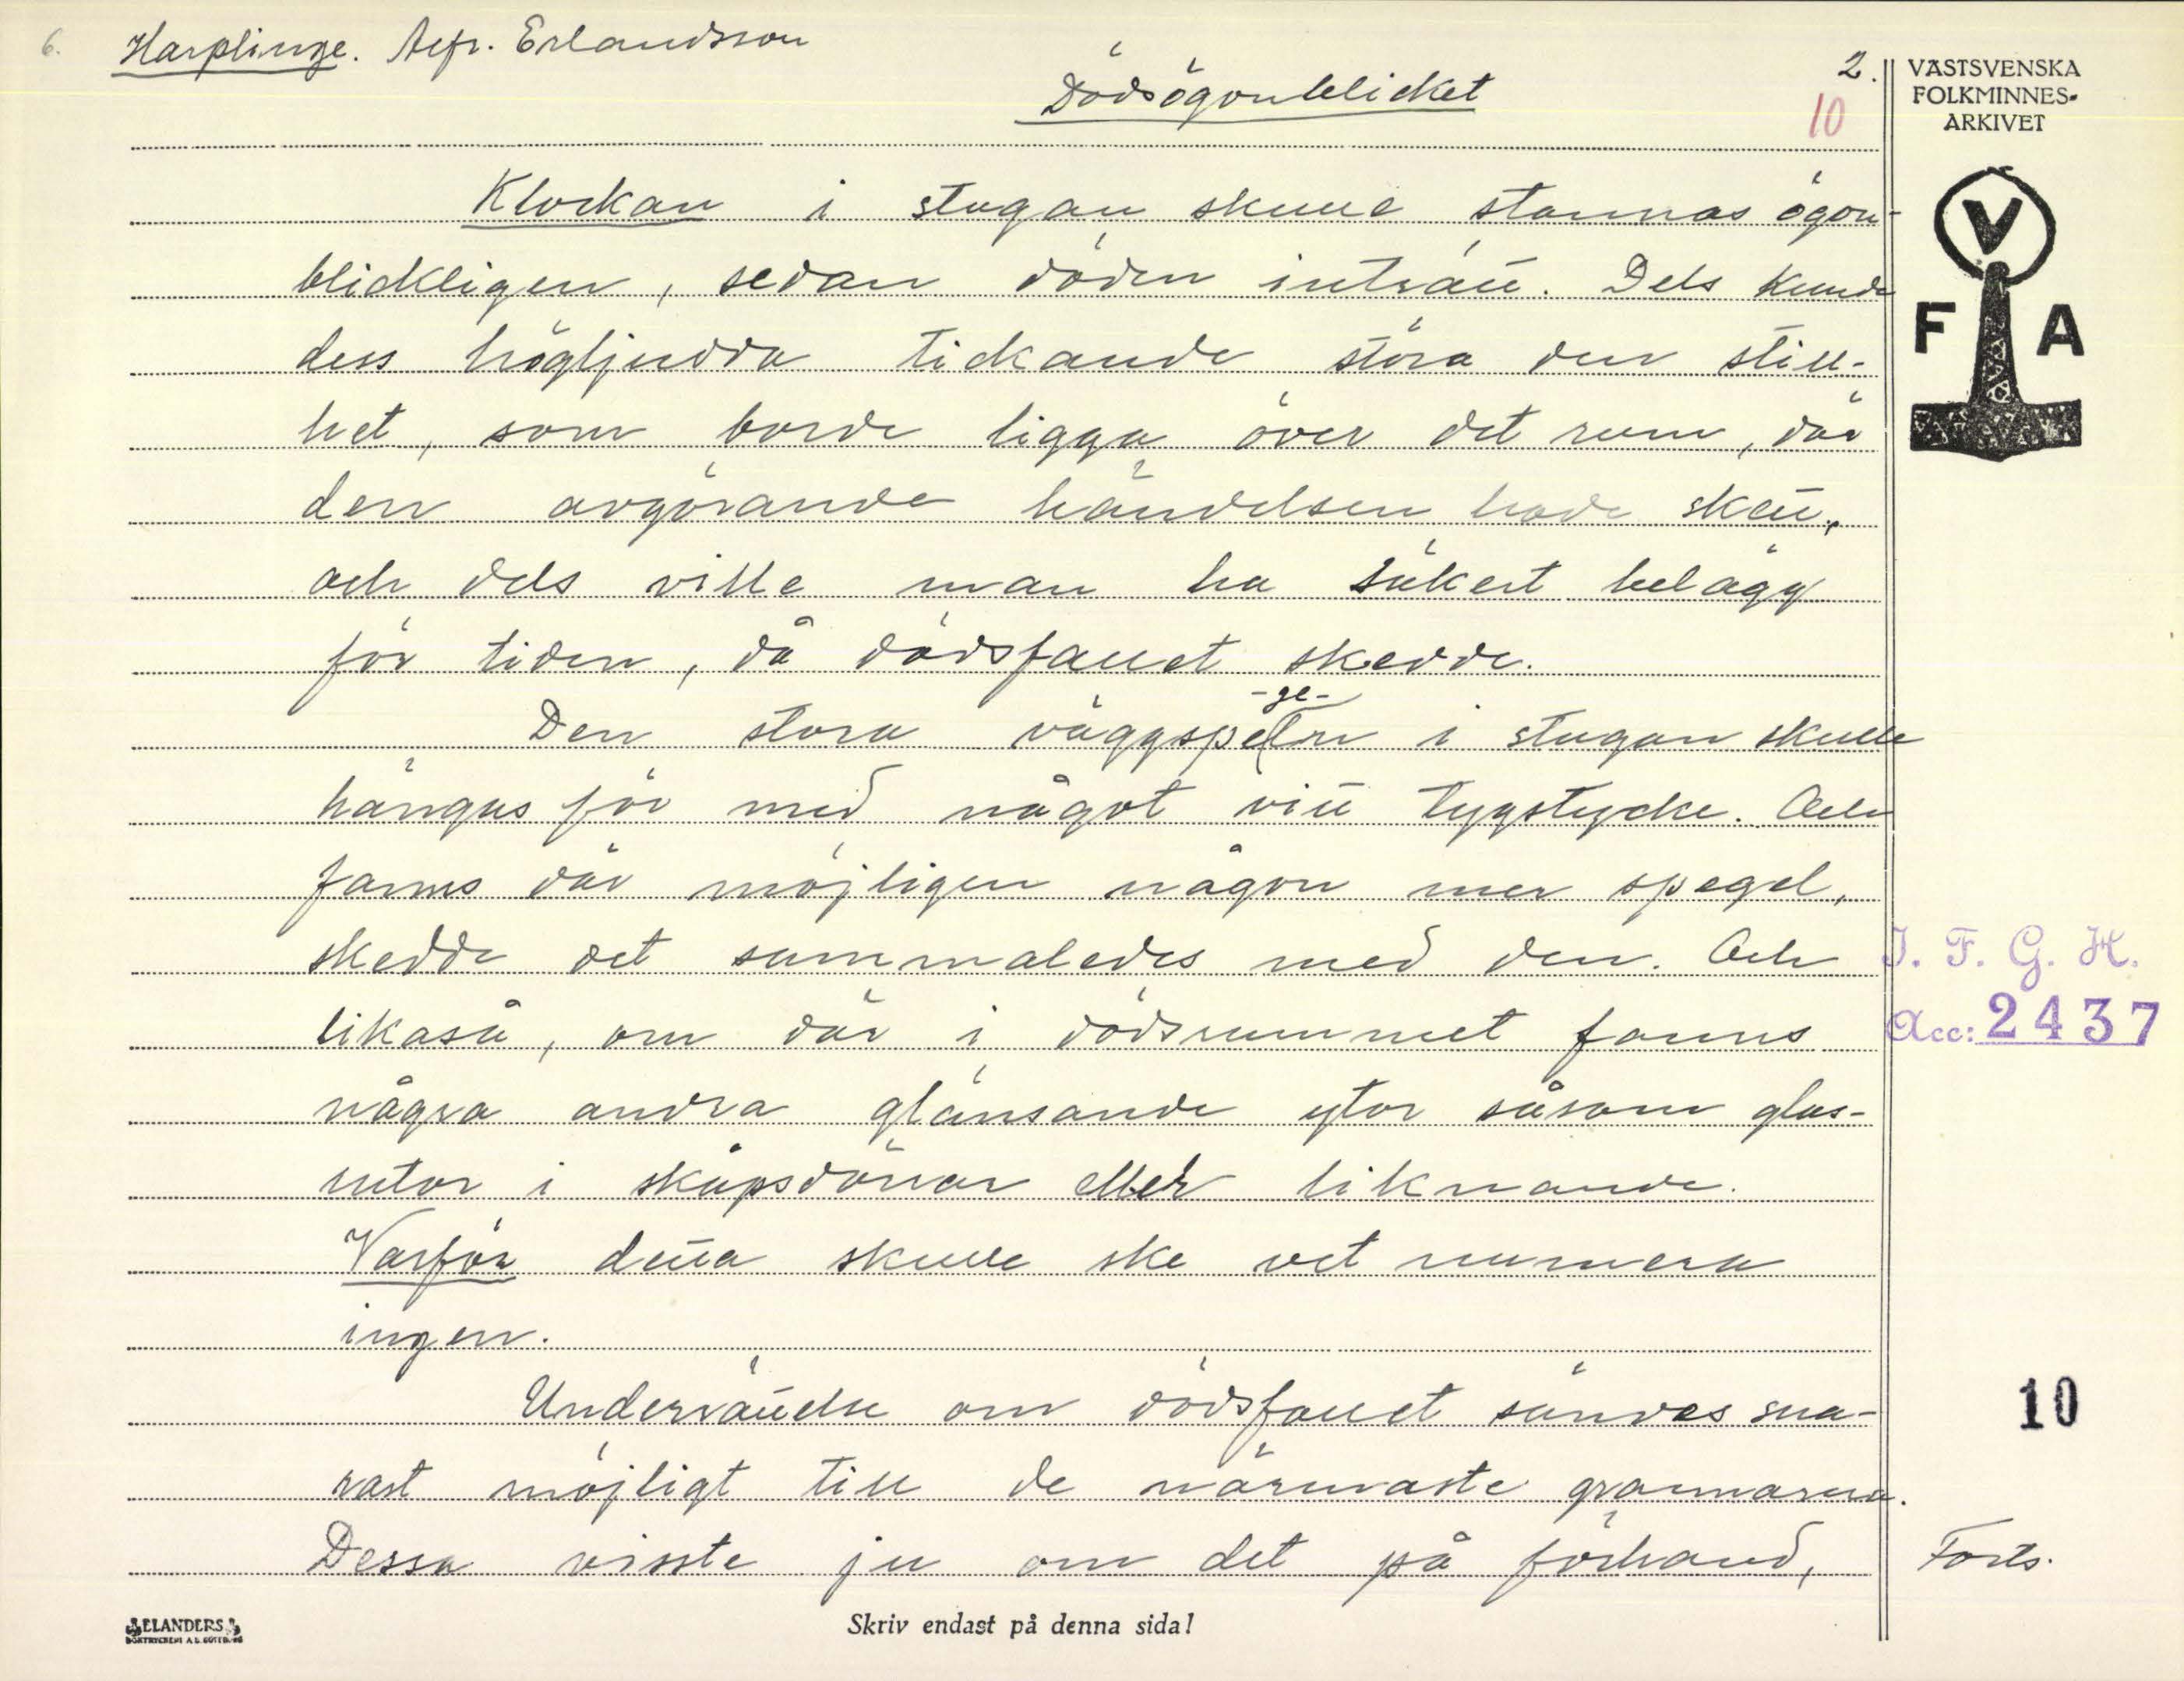 6. Harplinge. Alfr. Erlandsson
Dödsögonblicket
2.
10
VÄSTSVENSKA
FOLKMINNES-
ARKIVET
V
F A
Klockan i stugan skulle stannas ögon-
blickligen, sedan döden inträtt. Dels kunde
dess högljudda tickande störa den still-
het, som borde ligga över det rum, där
den avgörande händelsen hade skett,
och dels ville man ha säkert belägg
för tiden, då dödsfallet skedde.
-ge-
Den stora väggspeln i stugan skulle
hängas för med något vitt tygstycke. Och
fanns där möjligen någon mer spegel,
skedde det sammaledes med den. Och
likaså, om där i dödsrummet fanns
några andra glänsande ytor såsom glas-
rutor i skåpsdörrar eller liknande.
Varför detta skulle ske vet numera
ingen.
Underrättelse om dödsfallet sändes sna-
rast möjligt till de närmaste grannarna.
Dessa visste ju om det på förhand,
I. F. G. H.
Acc: 2437
10
Forts.
ELANDERS
BOKTRYCKERI A.B. GÖTEBORG
Skriv endast på denna sida!